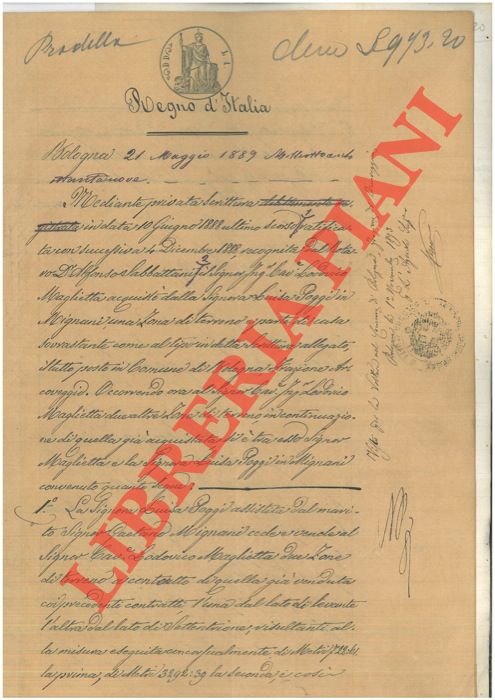 Pradella
L 973.20
Regno d'Italia
Bologna 21 Maggio 1889 Milleottocento
ottantanove
Mediante privata scrittura
in data 10 Giugno 1888 ultimo scorso ratifica
ta con successiva in Dicembre 1888 recognita dal Nota
ro Dr Alfonso Sabbatani il Signor Ing. Cav. Lodovico
Maglietta acquistò dalla Signora Luisa Poggi in
Mignani una Zona di terreno e parte di casa
sovrastante come al tipo in detta scrittura allegato,
il tutto posto in Comune di Bologna frazione Ar
coveggio. Occorrendo ora al Signor Cav. Ing. Lodovico
Maglietta due altre Zone di terreno in continuazio
ne di quella già acquistata si è tra esso Signor
Maglietta e la Signora Luisa Poggi in Mignani
convenuto quanto segue:
1º La Signora Luisa Poggi assistita dal mari
to Signor Gaetano Mignani cede e vende al
Signor Cav. Lodovico Maglietta due Zone
di terreno a contatto di quella già venduta
col precedente contratto l'una dal lato di levante
l'altra dal lato di Settentrione, risultante al
la misura eseguita concordemente di Metri
la prima, di Metri 3292:39 la seconda, e così
LIBRERIA PIANI